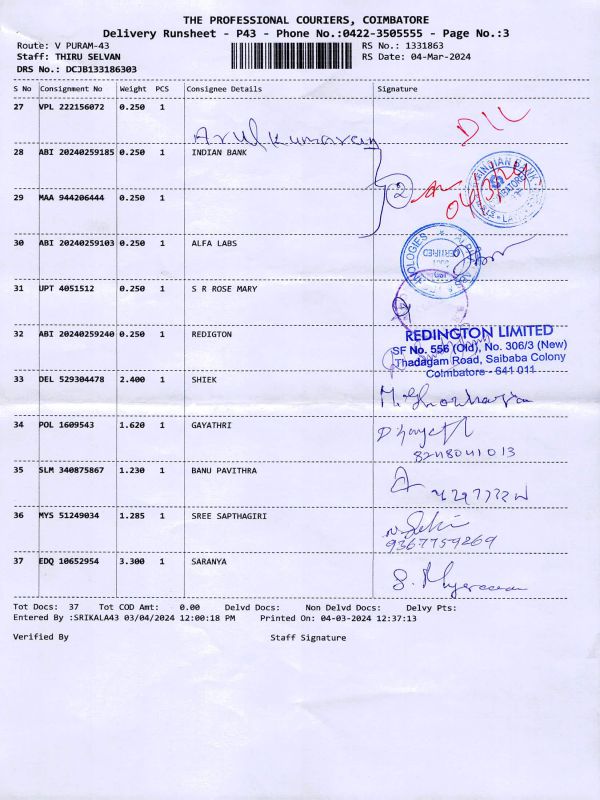 THE PROFESSIONAL COURIERS, COIMBATORE
Delivery Runsheet - P43 - Phone No.:0422-3505555 - Page No.:3
Route: V PURAM-43 RS No.: 1331863
Staff: THIRU SELVAN RS Date: 04-Mar-2024
DRS No.: DCJB133186303
S No Consignment No Weight PCS Consignee Details Signature
27 VPL 222156072 0.250 1
Arul Kumaran DIL
28 ABI 20240259185 0.250 1 INDIAN BANK
INDIAN BANK
2 04/3/24
29 MAA 944206444 0.250 1
30 ABI 20240259103 0.250 1 ALFA LABS
31 UPT 4051512 0.250 1 S R ROSE MARY
32 ABI 20240259240 0.250 1 REDIGTON
REDINGTON LIMITED
SF No. 556 (Old), No. 306/3 (New)
Thadagam Road, Saibaba Colony
Coimbatore - 641 011
33 DEL 529304478 2.400 1 SHIEK
34 POL 1609543 1.620 1 GAYATHRI
8248041013
35 SLM 340875867 1.230 1 BANU PAVITHRA
36 MYS 51249034 1.285 1 SREE SAPTHAGIRI
9367759269
37 EDQ 10652954 3.300 1 SARANYA
Tot Docs: 37 Tot COD Amt: 0.00 Delvd Docs: Non Delvd Docs: Delvy Pts:
Entered By :SRIKALA43 03/04/2024 12:00:18 PM Printed On: 04-03-2024 12:37:13
Verified By Staff Signature